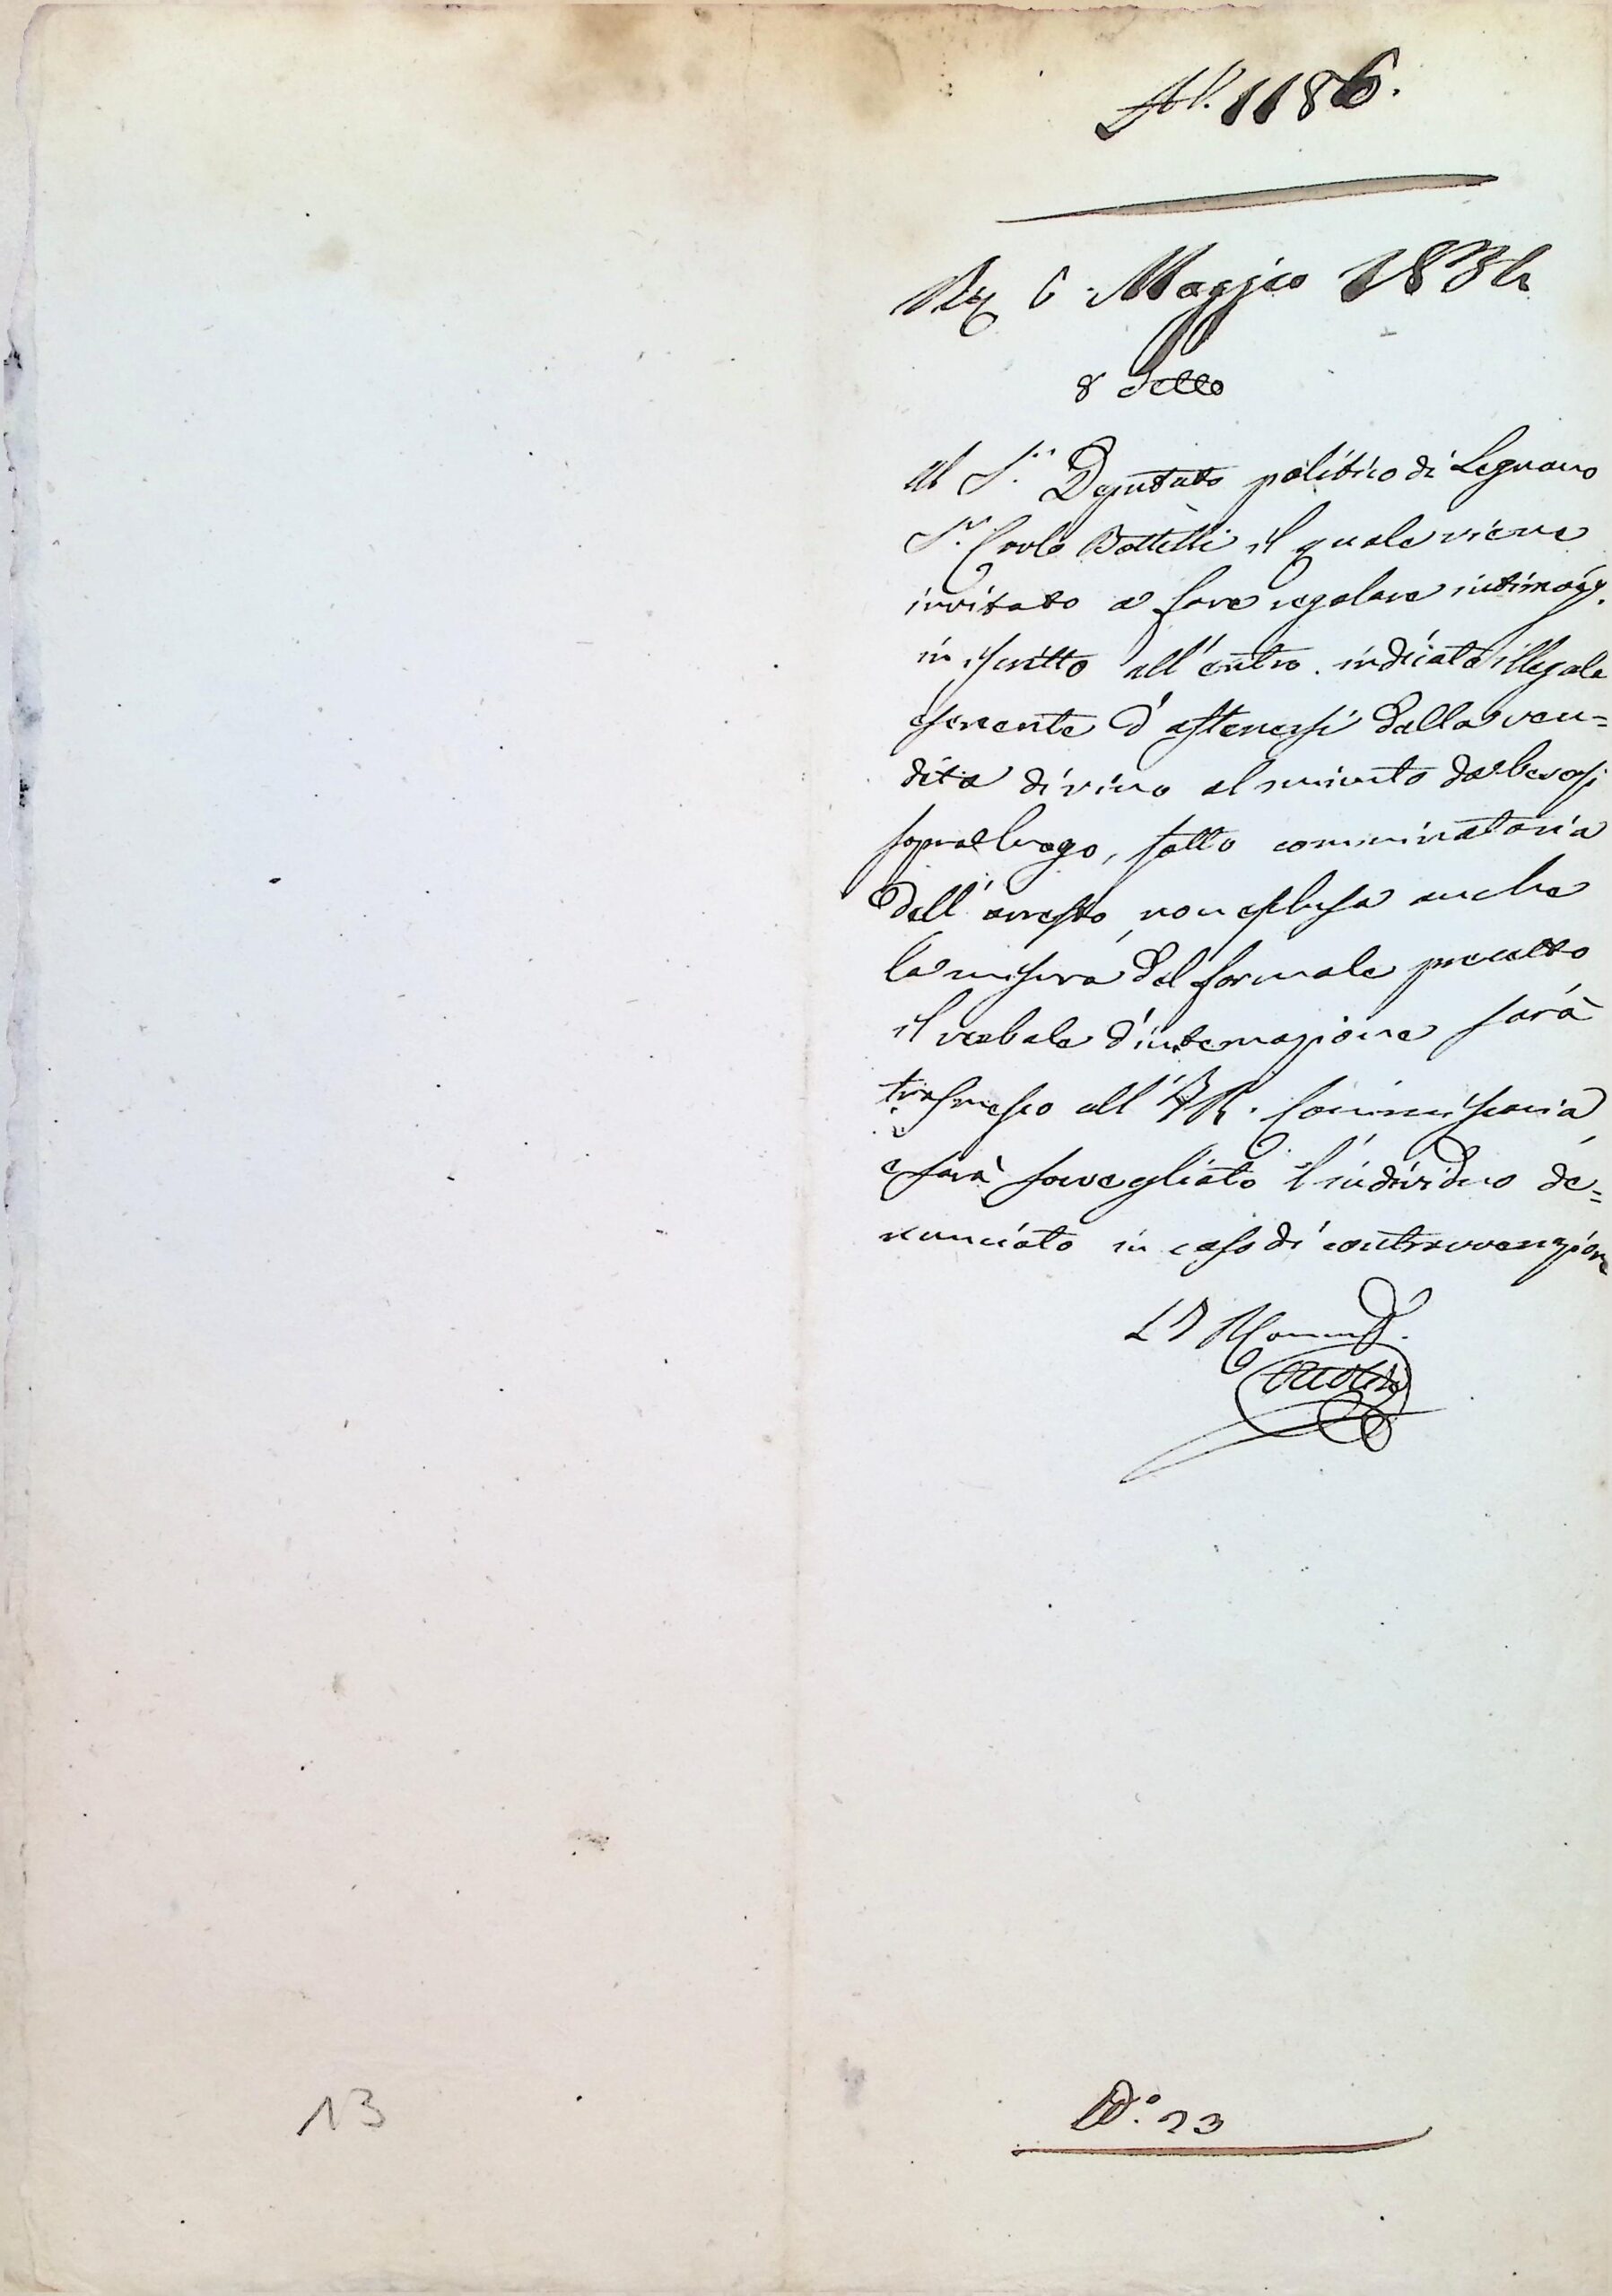 N. 1186.
6 Maggio 183
8 detto
Al S.r Deputato politico di Legnano
S.r Carlo Bottelli il quale viene
invitato a fare regolare intimaz.
in iscritto all'entro indicato illegale
esercente d'astenersi dalla ven=
dita di vino al minuto da bersi
sopraluogo, sotto comminatoria
dell'arresto, non esclusa anche
la misura del formale precetto
il verbale d'intimazione sarà
trasmesso all'I.R. Commissaria
e sarà sorvegliato l'individuo de=
nunciato in caso di contravvenzione
13
D.° 23